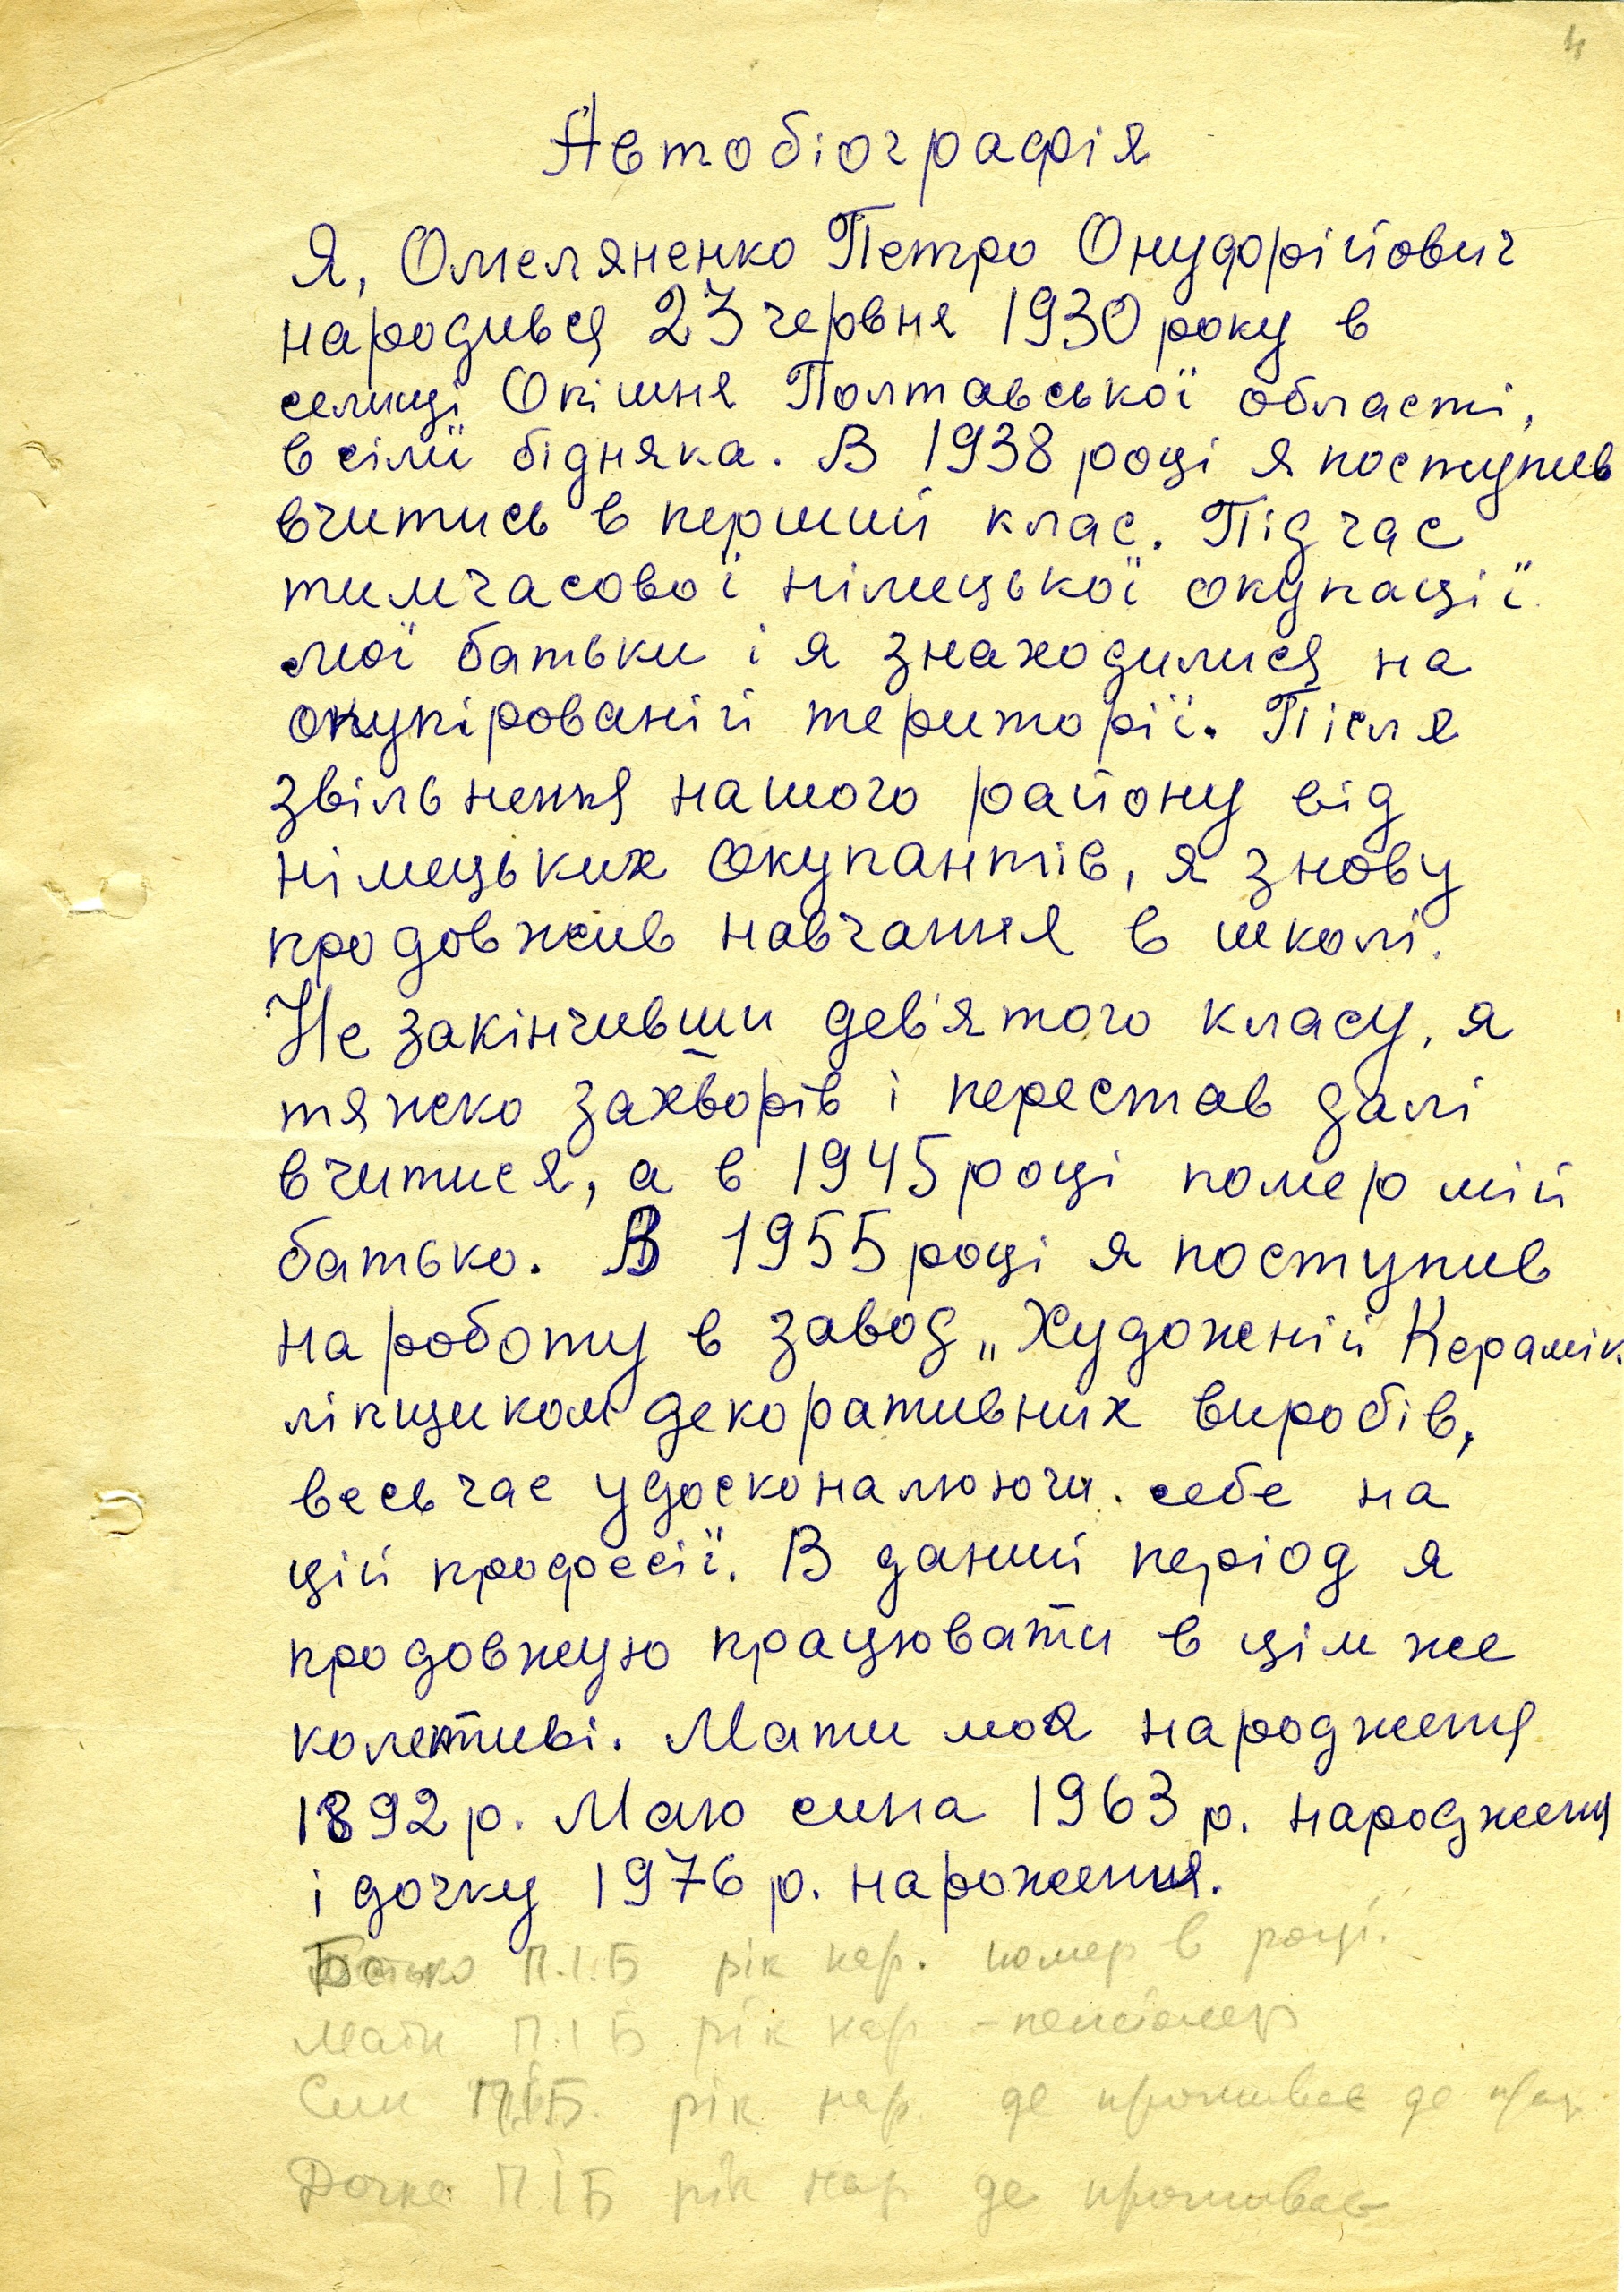 4
Автобіографія
Я, Омеляненко Петро Онуфрійович
народився 23 червня 1930 року в
селищі Опішня Полтавської області,
в сімї бідняка. В 1938 році я поступив
вчитись в перший клас. Під час
тимчасової німецької окупації
мої батьки і я знаходилися на
окупірованій території. Після
звільнення нашого району від
німецьких окупантів, я знову
продовжив навчання в школі.
Не закінчивши дев'ятого класу, я
тяжко захворів і перестав далі
вчитися, а в 1945 році помер мій
батько. В 1955 році я поступив
на роботу в завод „Художній Керамік
ліпщиком декоративних виробів,
весь час удосконалюючи себе на
цій професії. В даний період я
продовжую працювати в цім же
колективі. Мати моя народження
1892 р. Маю сина 1963 р. народження
і дочку 1976 р. нароження.
Батько П.І.Б рік нар. помер в році.
Мати П.І Б рік нар - пенсіонер
Син П.І.Б. рік нар де проживає де прац
Дочка П І Б рік нар де проживає